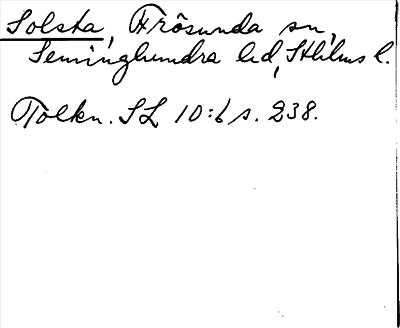 Solsta, Frösunda sn,
Seminghundra hd, Sthlms l.
Tolkn. SL 10:6 s. 238.